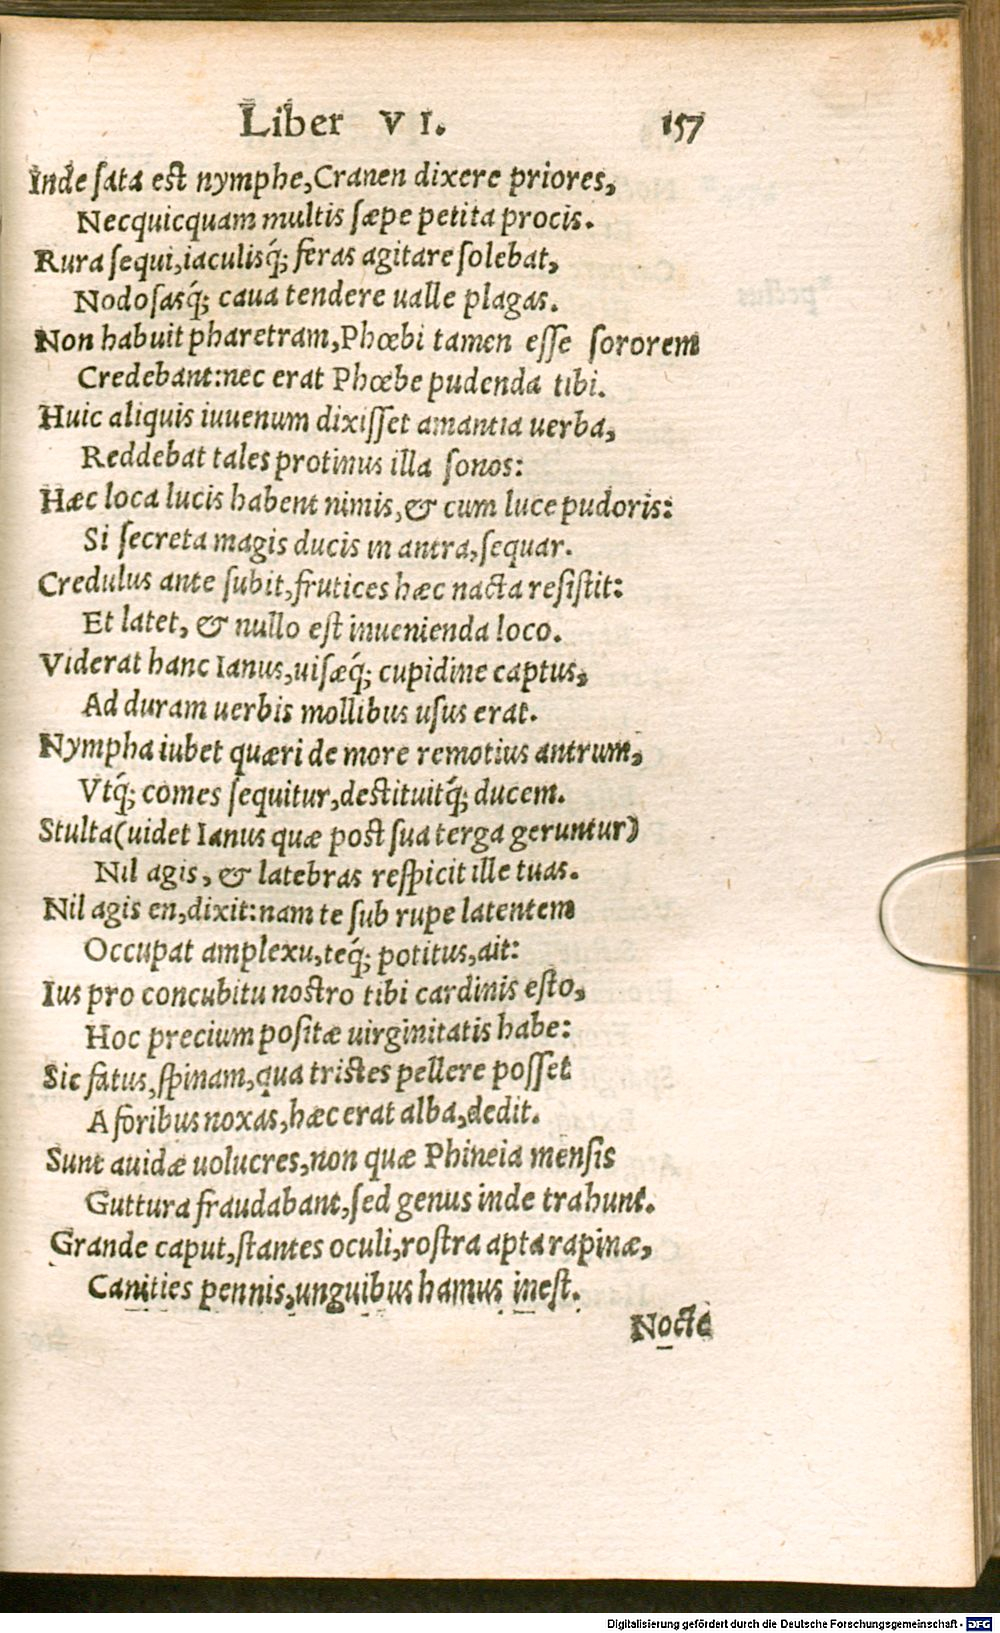 Liber VI. 157
Inde sata est nymphe, Cranen dixere priores,
Necquicquam multis sæpe petita procis.
Rura sequi, iaculisq́; feras agitare solebat,
Nodosasq́; caua tendere ualle plagas.
Non habuit pharetram, Phœbi tamen esse sororem
Credebant: nec erat Phœbe pudenda tibi.
Huic aliquis iuuenum dixisset amantia uerba,
Reddebat tales protinus illa sonos:
Hæc loca lucis habent nimis, & cum luce pudoris:
Si secreta magis ducis in antra, sequar.
Credulus ante subit, frutices hæc nacta resistit:
Et latet, & nullo est inuenienda loco.
Viderat hanc Ianus, uisæq́; cupidine captus,
Ad duram uerbis mollibus usus erat.
Nympha iubet quæri de more remotius antrum,
Vtq́; comes sequitur, destituitq́; ducem.
Stulta (uidet Ianus quæ post sua terga geruntur)
Nil agis, & latebras respicit ille tuas.
Nil agis en, dixit: nam te sub rupe latentem
Occupat amplexu, teq́; potitus, ait:
Ius pro concubitu nostro tibi cardinis esto,
Hoc precium positæ uirginitatis habe:
Sic fatus, spinam, qua tristes pellere posset
A foribus noxas, hæc erat alba, dedit.
Sunt auidæ uolucres, non quæ Phineia mensis
Guttura fraudabant, sed genus inde trahunt.
Grande caput, stantes oculi, rostra apta rapinæ,
Canities pennis, unguibus hamus inest.
Nocte
Digitalisierung gefördert durch die Deutsche Forschungsgemeinschaft - DFG